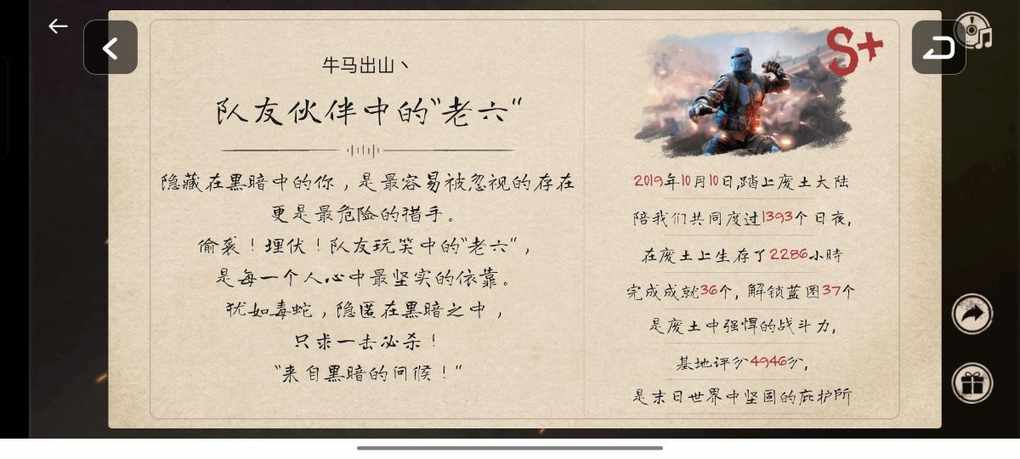 牛马出山丶
队友伙伴中的"老六"
隐藏在黑暗中的你，是最容易被忽视的存在
更是最危险的猎手。
偷袭！埋伏！队友玩笑中的"老六"，
是每一个人心中最坚实的依靠。
犹如毒蛇，隐匿在黑暗之中，
只求一击必杀！
"来自黑暗的问候！"
S+
2019年10月10日,踏上废土大陆
陪我们共同度过1393个日夜,
在废土上生存了2286小时
完成成就36个, 解锁蓝图37个
是废土中强悍的战斗力,
基地评分4946分,
是末日世界中坚固的庇护所